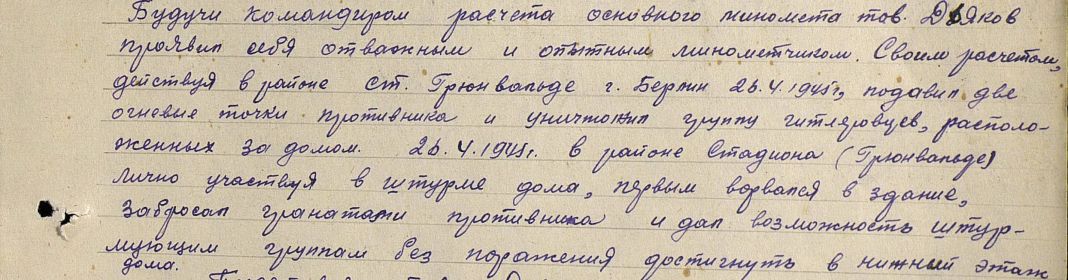 Будучи командиром расчета основного миномета тов. Дьяков
проявил себя отважным и опытным минометчиком. Своим расчетом,
действуя в районе ст. Грюнвальде г. Берлин 26.4.1945г., подавил две
огневые точки противника и уничтожил группу гитлеровцев, располо-
женных за домом. 26.4.1945г. в районе Стадиона (Грюнвальде)
лично участвуя в штурме дома, первым ворвался в здание,
забросал гранатами противника и дал возможность штур-
мующим группам без поражения достигнуть в нижний этаж
дома.